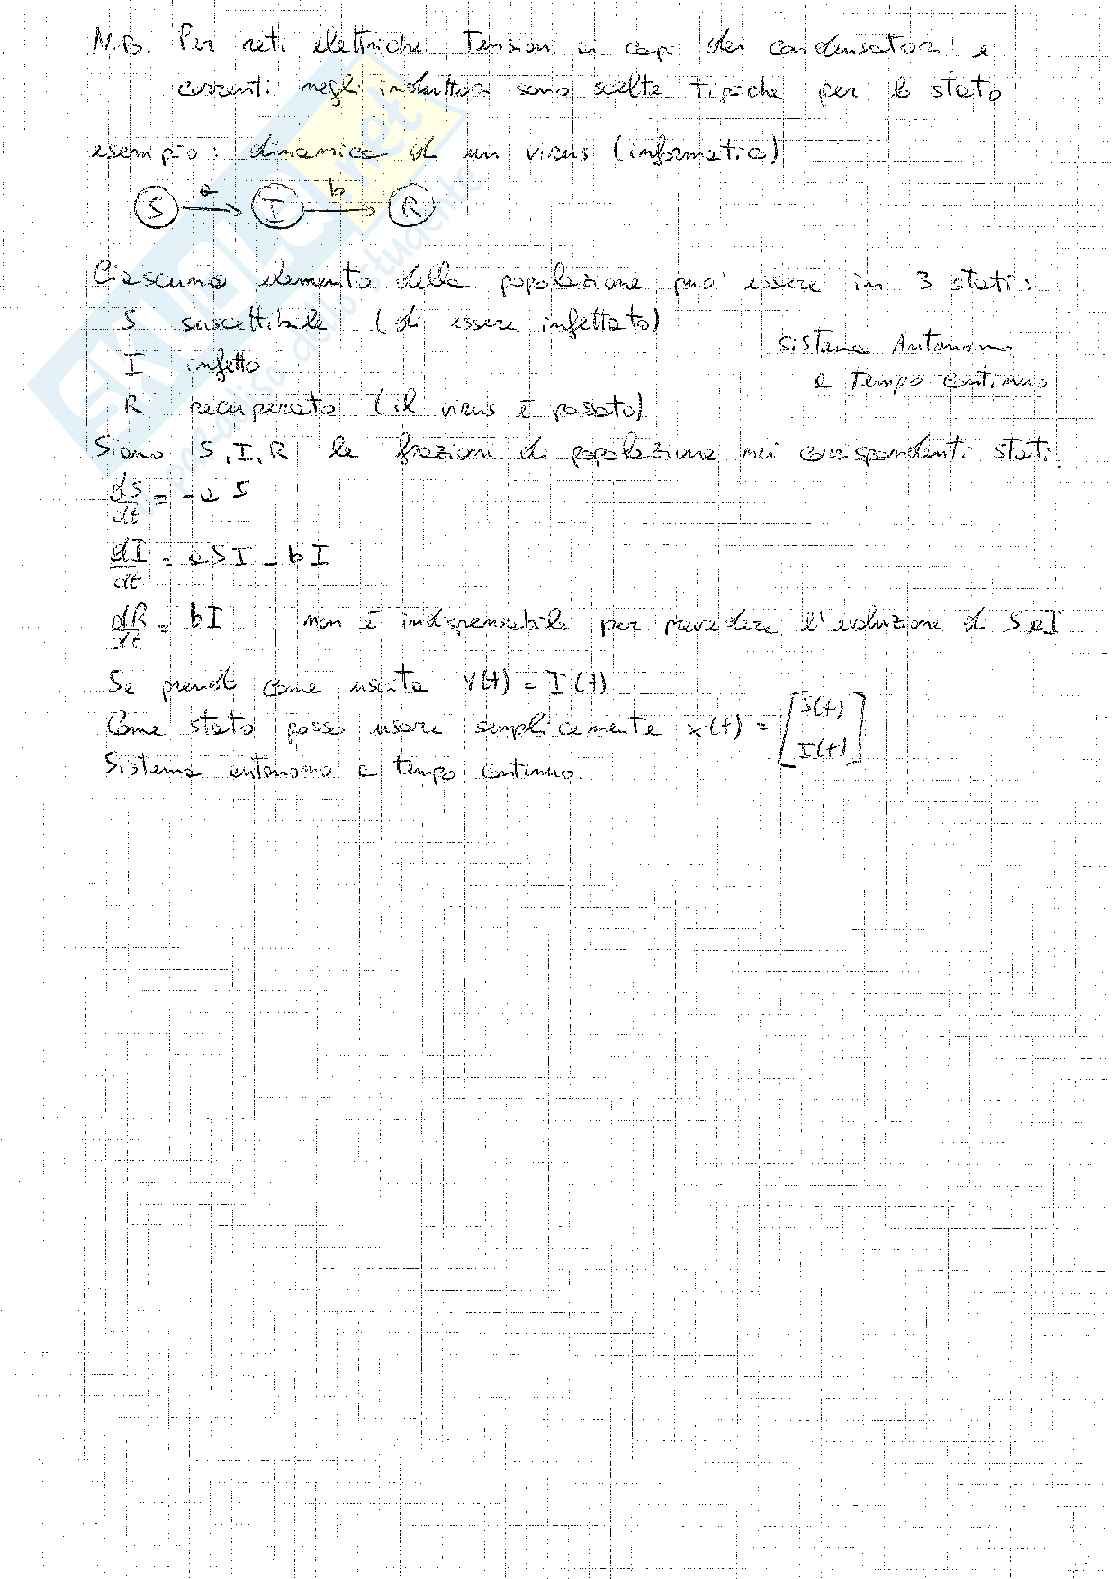 N.B. Per reti elettriche tensioni ai capi dei condensatori e
correnti negli induttori sono scelte tipiche per lo stato
esempio: dinamica di un virus (informatico)
S a I b R
Ciascuno elemento della popolazione può essere in 3 stati:
S suscettibile (di essere infettato)
I infetto
Sistema Autonomo
a tempo continuo
R recuperato (il virus è passato)
Siano S, I, R le frazioni di popolazione nei corrispondenti stati.
dS/dt = -a S
dI/dt = a S I - b I
dR/dt = b I non è indispensabile per prevedere l'evoluzione di S e I
Se prendo come uscita Y(t) = I(t)
Come stato posso usare semplicemente x(t) = [S(t) I(t)]
Sistema autonomo a tempo continuo.